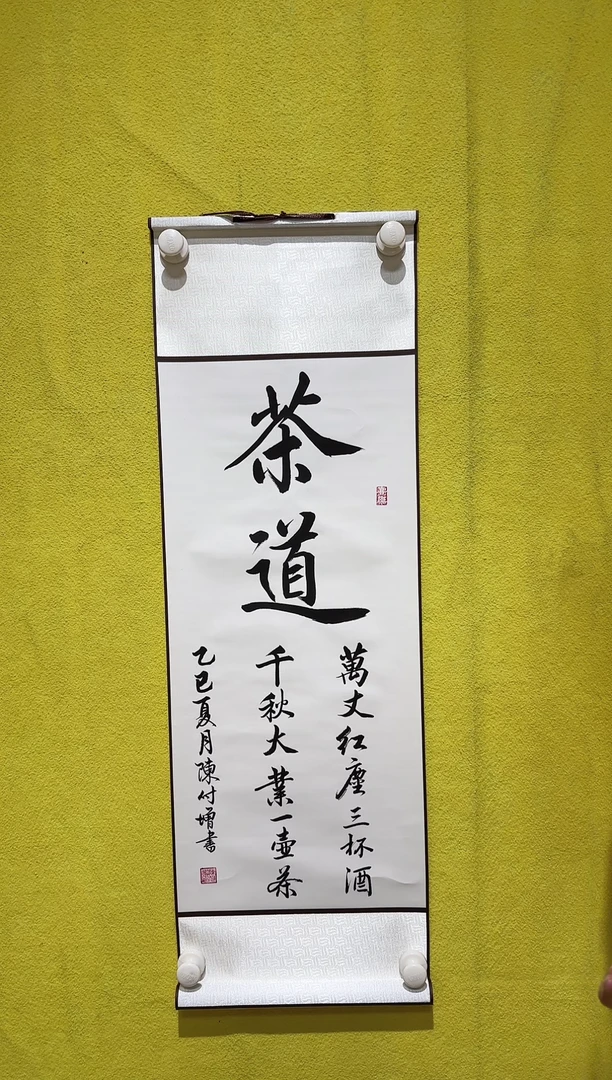 茶道
萬丈红塵三杯酒
千秋大業一壺茶
乙巳夏月陳付增書